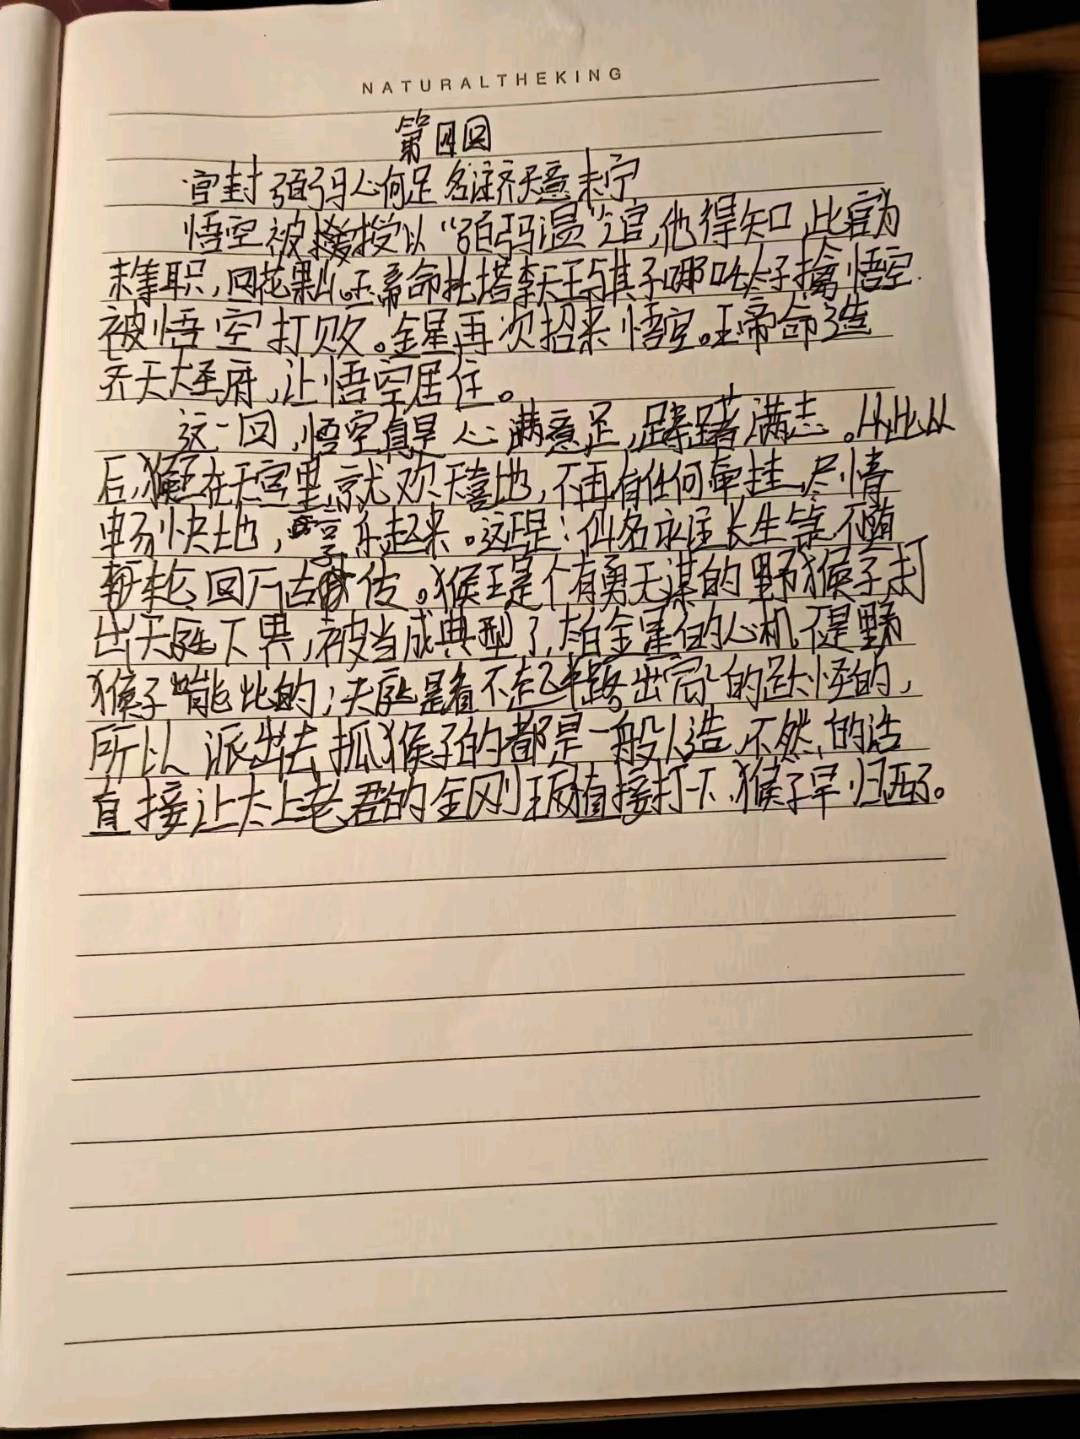 NATURALTHEKING
第四回
官封弼马心何足 名注齐天意未宁
悟空被授以“弼马温”之官,他得知此官为
末等职,回花果山。玉帝命托塔李天王与其子哪吒太子擒悟空.
被悟空打败。金星再次招来悟空。玉帝命造
齐天大圣府,让悟空居住。
这一回,悟空真是心满意足,踌躇满志。从此以
后,猴王在天宫里,就欢天喜地,不再有任何牵挂,尽情
畅快地,享乐起来。这正是:仙名永注长生箓 不堕
轮回万古传。猴王是个有勇无谋的野猴子,打
出天庭下界,被当成典型了,太白金星的心机,不是野
猴子能比的;天庭是看不起半路出家的妖怪的,
所以派出去抓猴子的都是一般人造,不然的话
直接让太上老君的金刚琢直接打下,猴子早归西了。